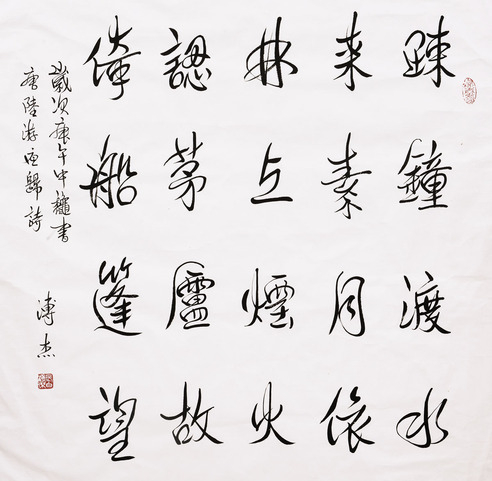 踈鐘渡水
来素月依
林上煙火
認茅廬故
倚船篷望
歲次庚午中龝書
唐陸游夜歸詩
溥杰